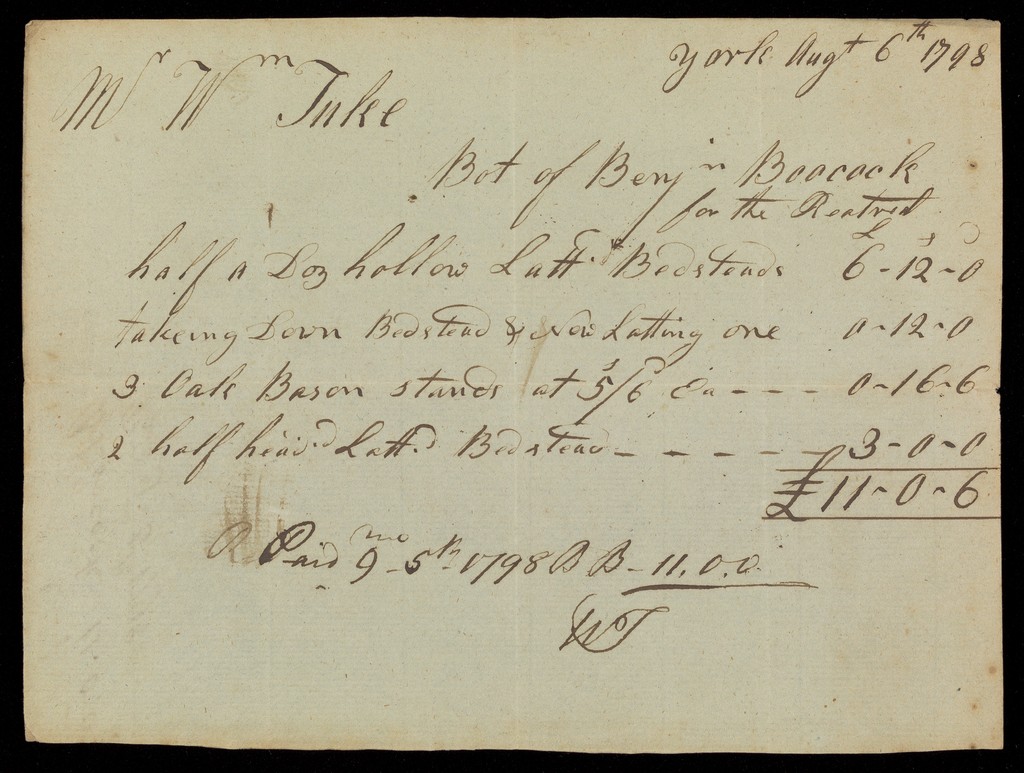 York Augt 6th 1798
Mr Wm Tuke
Bot of Benjn Boocock
for the Reatreat
£ s d
half a Doz hollow Latt.d Bedsteads 6-12-0
takeing Down Bedstead & New Latting one 0-12-0
3 Oak Bason stands at 5s/6d Ea - - - 0-16-6
2 half head.d Latt.d Bedstead - - - - - 3-0-0
£11-0-6
Paid 9mo 5th 1798 B B - 11.0.0
WT